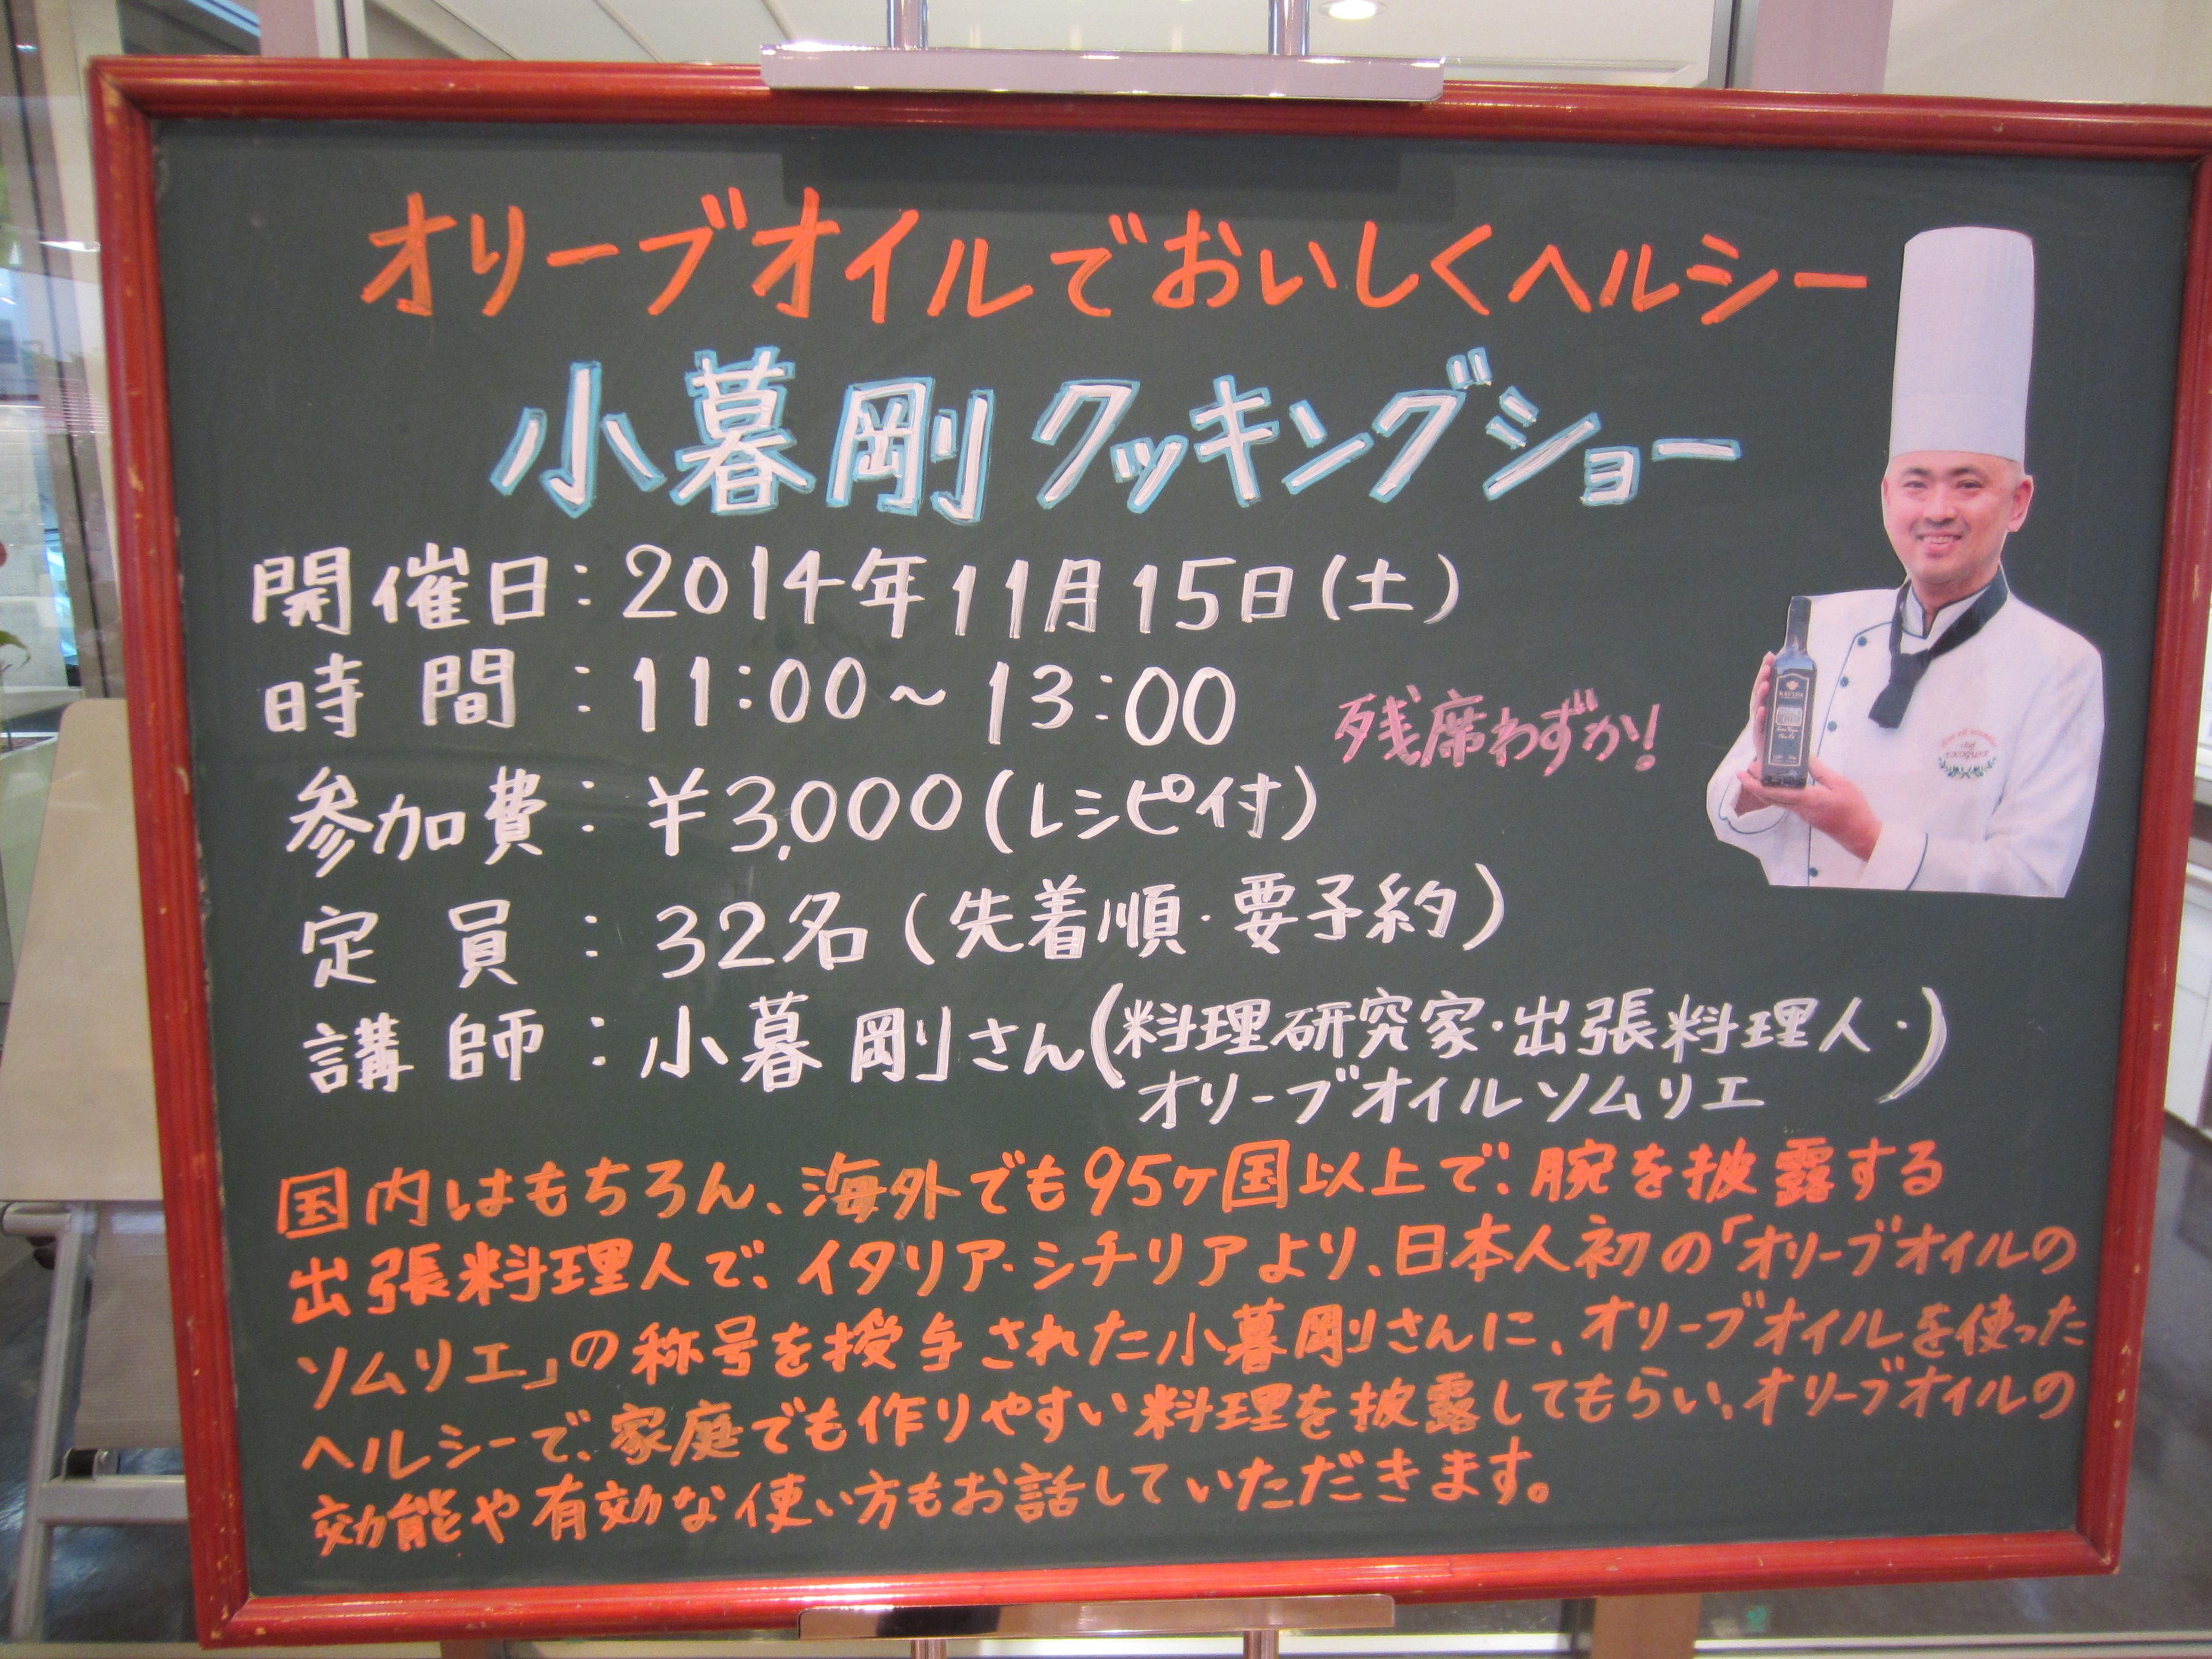 オリーブオイルでおいしくヘルシー
小暮剛 クッキングショー
開催日：2014年11月15日（土）
時間：11:00～13:00
残席わずか！
参加費：￥3,000（レシピ付）
定員：32名（先着順・要予約）
講師：小暮 剛さん（料理研究家・出張料理人・
オリーブオイルソムリエ）
国内はもちろん、海外でも95ヶ国以上で、腕を披露する
出張料理人で、イタリア・シチリアより、日本人初の「オリーブオイルの
ソムリエ」の称号を授与された小暮剛さんに、オリーブオイルを使った
ヘルシーで、家庭でも作りやすい料理を披露してもらい、オリーブオイルの
効能や有効な使い方もお話していただきます。